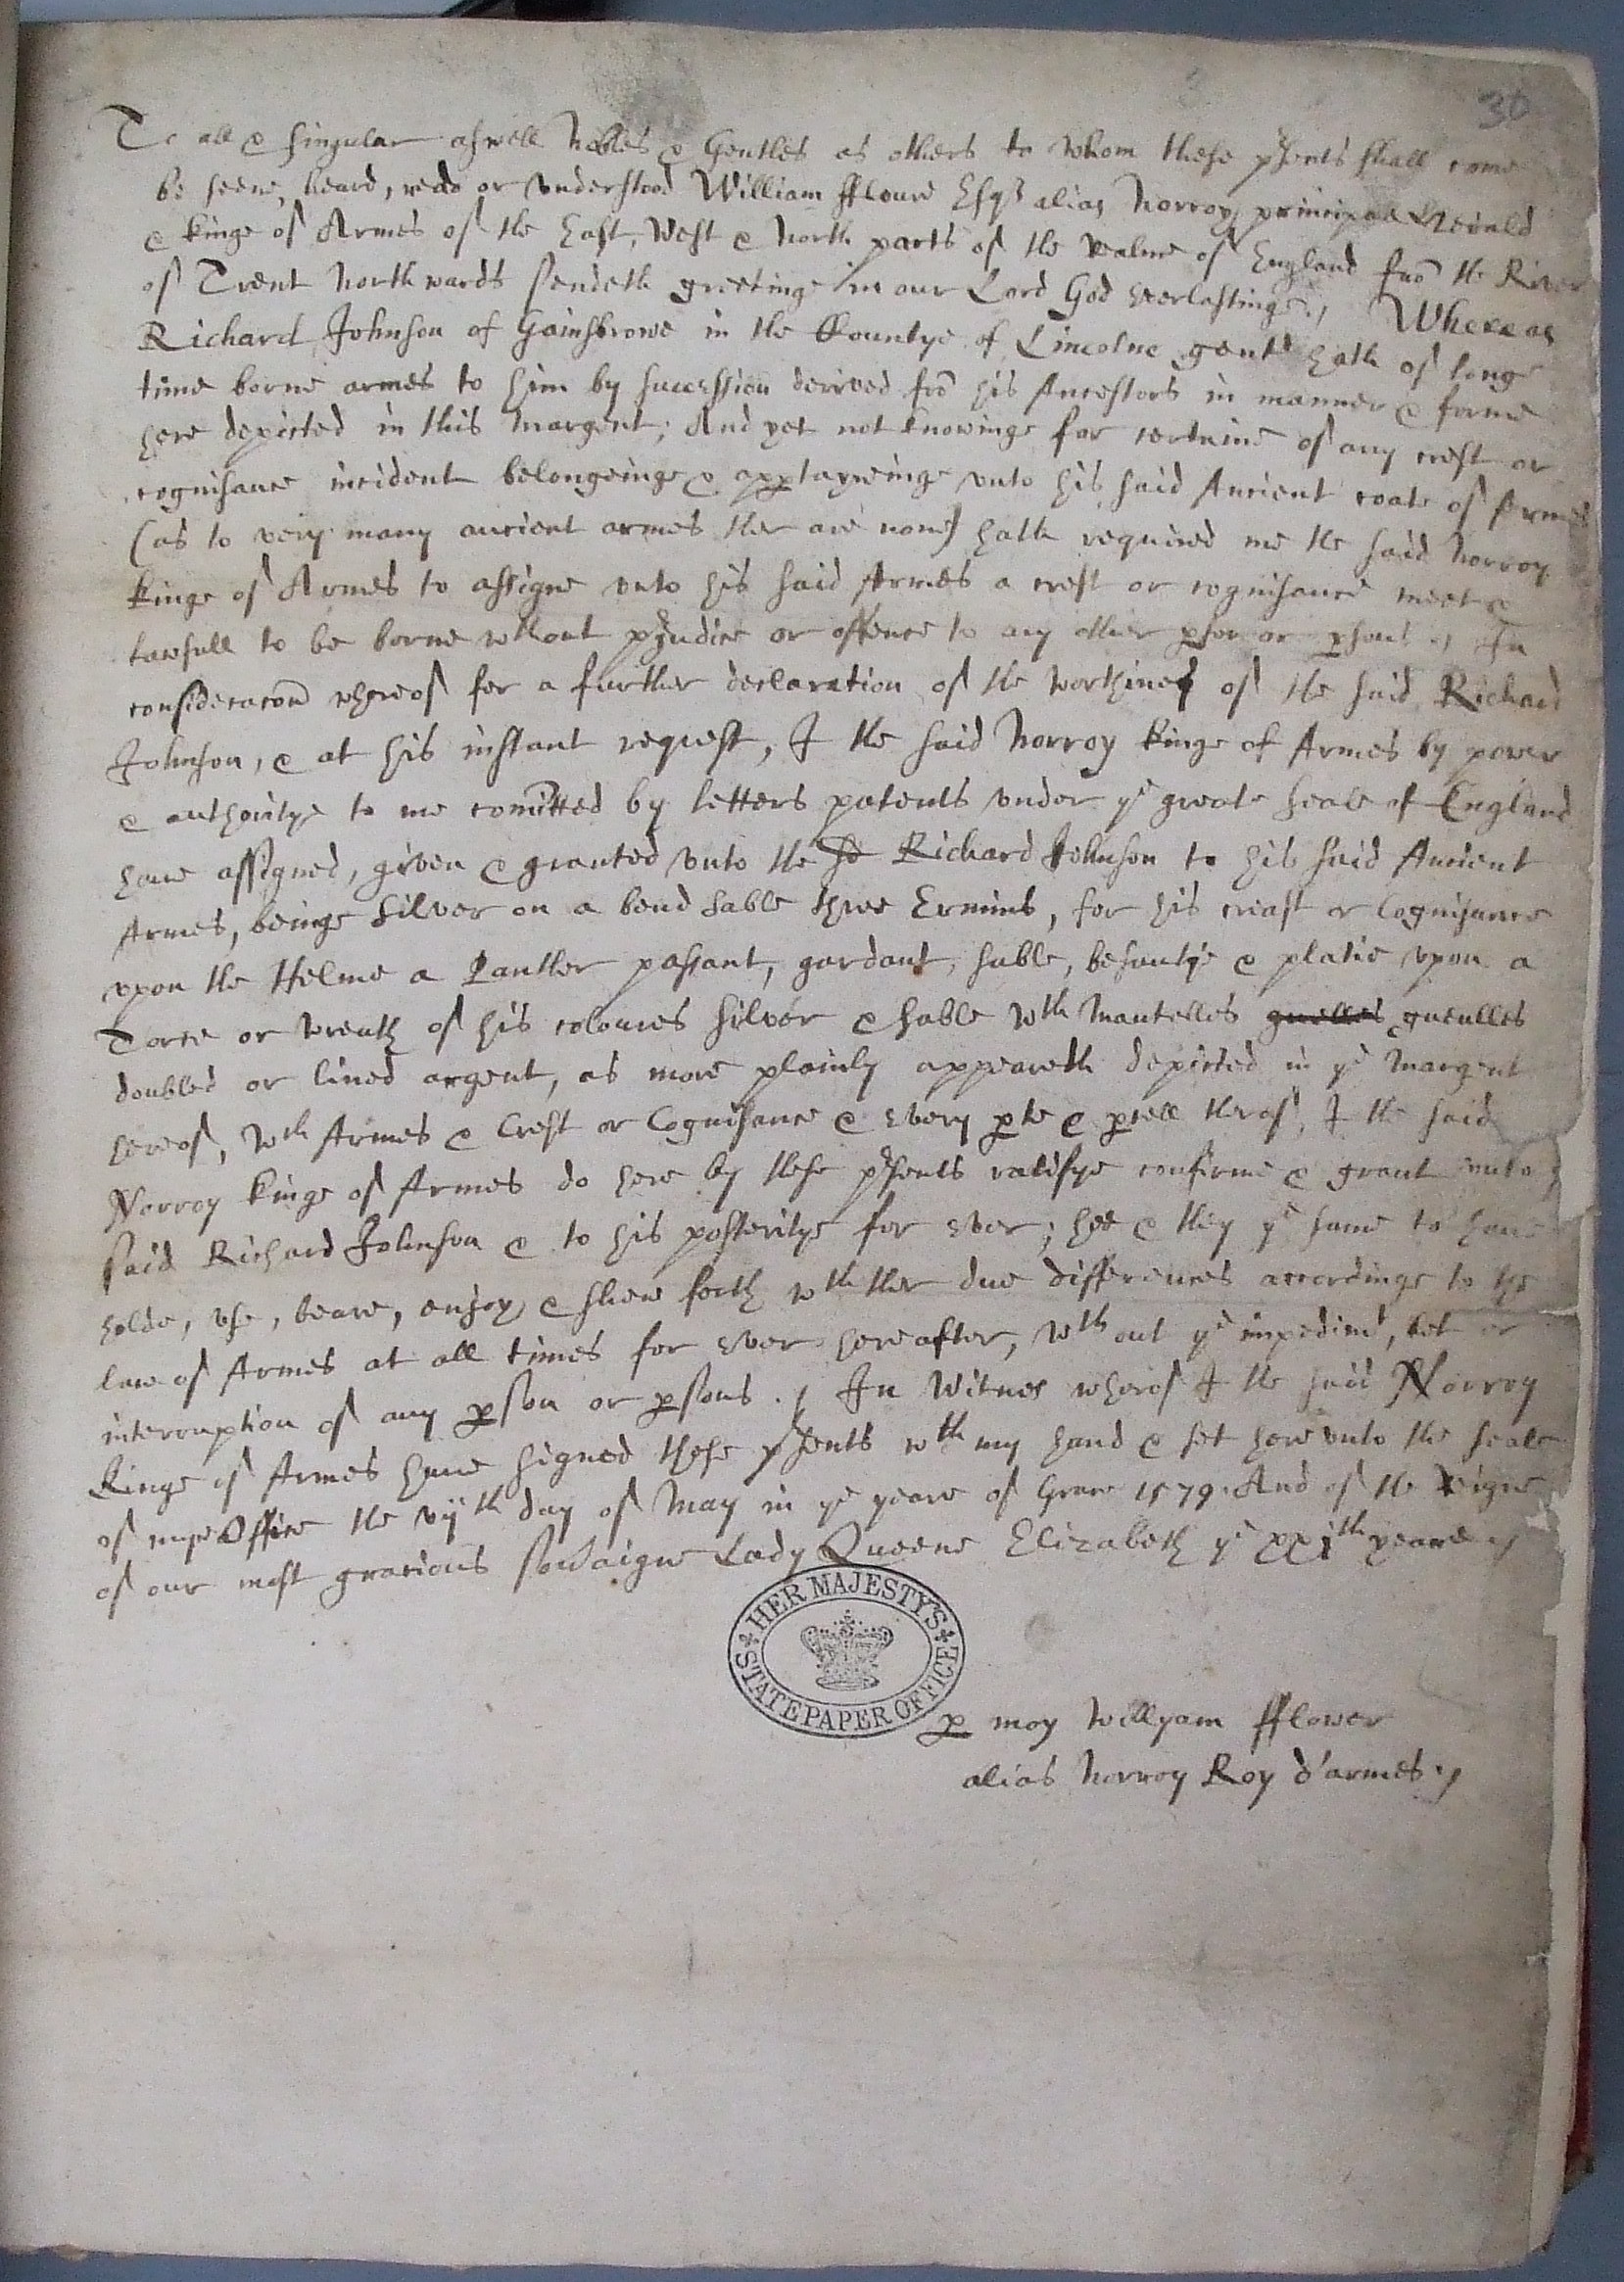 30
To all & singular aswell Nobles & Gentles as others to whom these pñts shall come
be seene, heard, read or understood William fflowre Esqr alias Norroy principall Herald
& kinge of Armes of the East, West & North parts of the realme of England frõ the River
of Trent Northwards sendeth greetinge in our Lord God everlastinge., Whereas
Richard Johnson of Gainsbrowe in the Countye of Lincolne gent hath of longe
time borne armes to him by succession derived frõ his Ancestors in manner & forme
here depicted in this margent; And yet not knowinge for certaine of any crest or
cognisance incident belongeinge & appertayneinge unto his said Ancient coate of Armes
(as to very many ancient armes ther are none) hath required me the said Norroy
kinge of Armes to assigne unto his said Armes a crest or cognisance meet &
lawfull to be borne wthout pjudice or offence to any other pson or psons ., In
consideracõn whereof for a further declaration of the worthines of the said Richard
Johnson, & at his instant request, I the said Norroy kinge of Armes by power
& authoritye to me comitted by letters patents under ye greate seale of England
have assigned, given & granted unto the se Richard Johnson to his said Ancient
Armes, beinge silver on a bend sable three Ermins, for his creast or Cognisance
upon the Helme a Panther passant, gardant, sable, besantye & platie upon a
Torce or wreath of his coloures silver & sable wth Mantelles guelles gueulles
doubled or lined argent, as more plainly appeareth depicted in ye Margent
hereof, wch Armes & Crest or Cognisance & every pte & pcell therof, I the said
Norroy kinge of Armes do here by these psents ratifye confirme & grant unto ye
said Richard Johnson & to his posteritye for ever; hee & they ye same to have
holde, use, beare, enjoy & shew forth wth ther due differences accordinge to the
law of Armes at all times for ever hereafter, wthout ye impedimt, let or
interruption of any pson or psons ., In Witnes wherof I the said Norroy
Kinge of Armes have signed these psents wth my hand & set here unto the seale
of mye Office the vijth day of May in ye yeare of Grace 1579. And of the Reigne
of our most gracious sovaigne Lady Queene Elizabeth ye xxjth yeare .,
HER MAJESTY'S STATE PAPER OFFICE
p moy Willyam fflower
alias Norroy Roy d'armes .,